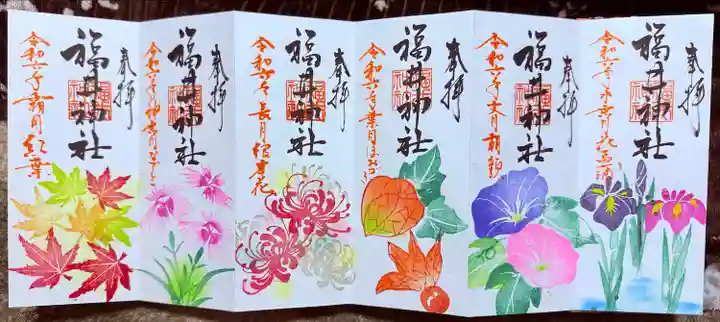 奉拝
福井神社
令和六年 花菖蒲
奉拝
福井神社
令和六年文月 朝顔
奉拝
福井神社
令和六年葉月
奉拝
福井神社
令和六年長月
奉拝
福井神社
令和六年神無月なでしこ
奉拝
福井神社
令和六年霜月 紅葉